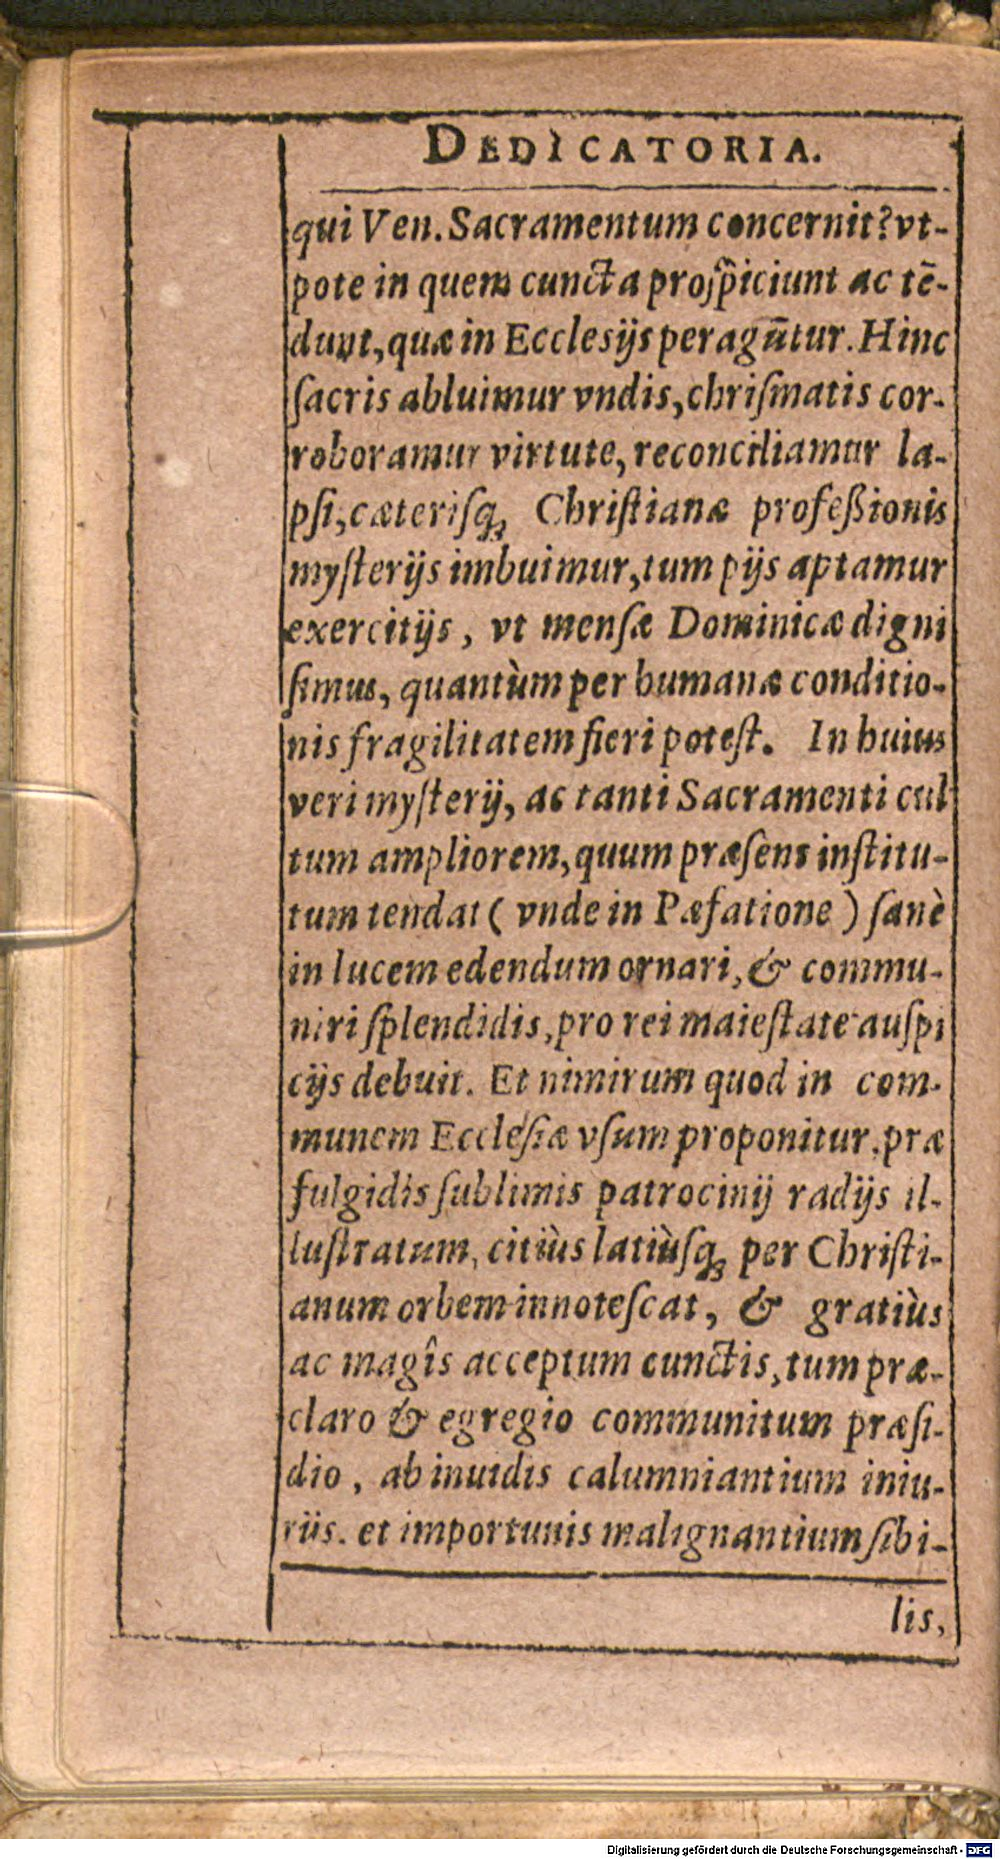 DEDICATORIA.
qui Ven. Sacramentum concernit? vt-
pote in quem cuncta proſpiciunt ac tē-
dunt, quæ in Ecclesijs peragūtur. Hinc
ſacris abluimur vndis, chriſmatis cor-
roboramur virtute, reconciliamur la-
pſi, cæteriſq; Chriſtianæ profeßionis
myſterijs imbuimur, tum pijs aptamur
exercitijs, vt menſæ Dominicæ digni
ſimus, quantùm per humanæ conditio-
nis fragilitatem fieri poteſt. In huius
veri myſterij, ac tanti Sacramenti cul
tum ampliorem, quum præſens inſtitu-
tum tendat ( vnde in Pæfatione ) ſanè
in lucem edendum ornari, & commu-
niri ſplendidis, pro rei maieſtate auſpi
cijs debuit. Et nimirum quod in com-
munem Eccleſiæ vſum proponitur, præ
fulgidis ſublimis patrocinij radijs il-
luſtratum, citiùs latiùſq; per Chriſti-
anum orbem innoteſcat, & gratiùs
ac magîs acceptum cunctis, tum præ-
claro & egregio communitum præſi-
dio, ab inuidis calumniantium iniu-
riis. et importunis malignantium ſibi-
lis,
Digitalisierung gefördert durch die Deutsche Forschungsgemeinschaft - DFG